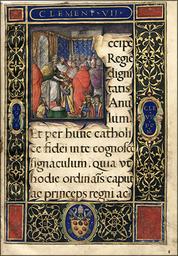 CLEMENT · VII ·
ccipe
Regię
digni
tatis
Anu
lum
Et per hunc catholi
cę fidei in te cognosce
signaculum. quia ut
hodie ordinaris caput
ac princeps regni ac